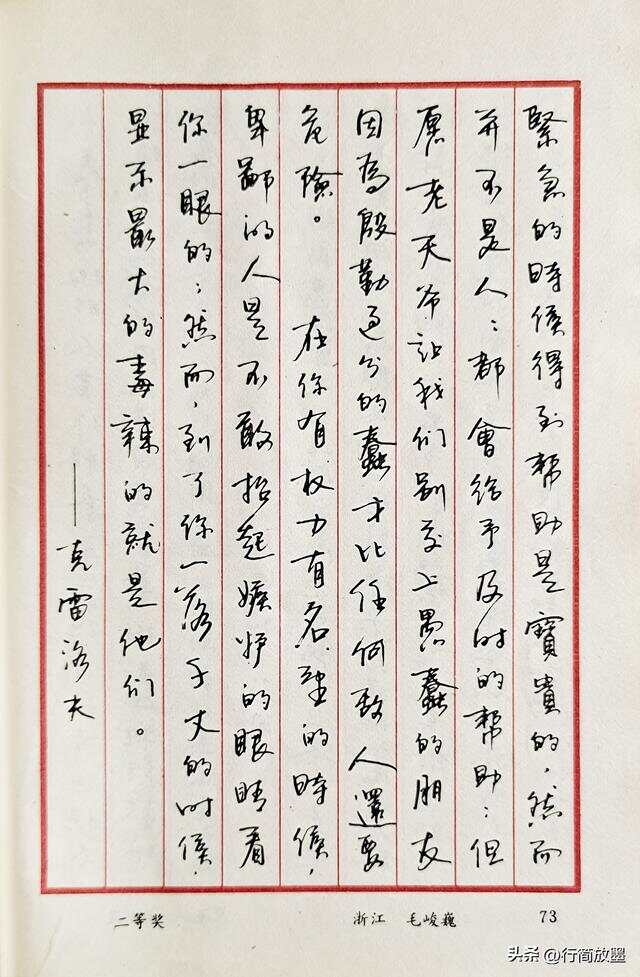 緊急的時候得到幇助是寶貴的，然而
并不是人：都會给予及时的幇助：但
愿老天爷让我們别交上愚蠢的朋友
因為殷勤过分的蠢才比任何敌人還要
危險。 在你有权力有名望的時候，
卑鄙的人是不敢抬起嫉妒的眼睛看
你一眼的；然而，到了你一落千丈的时候，
显示最大的毒辣的就是他们。
——克雷洛夫
二等奖 浙江 毛峻巍 73
头条 @行简放墨